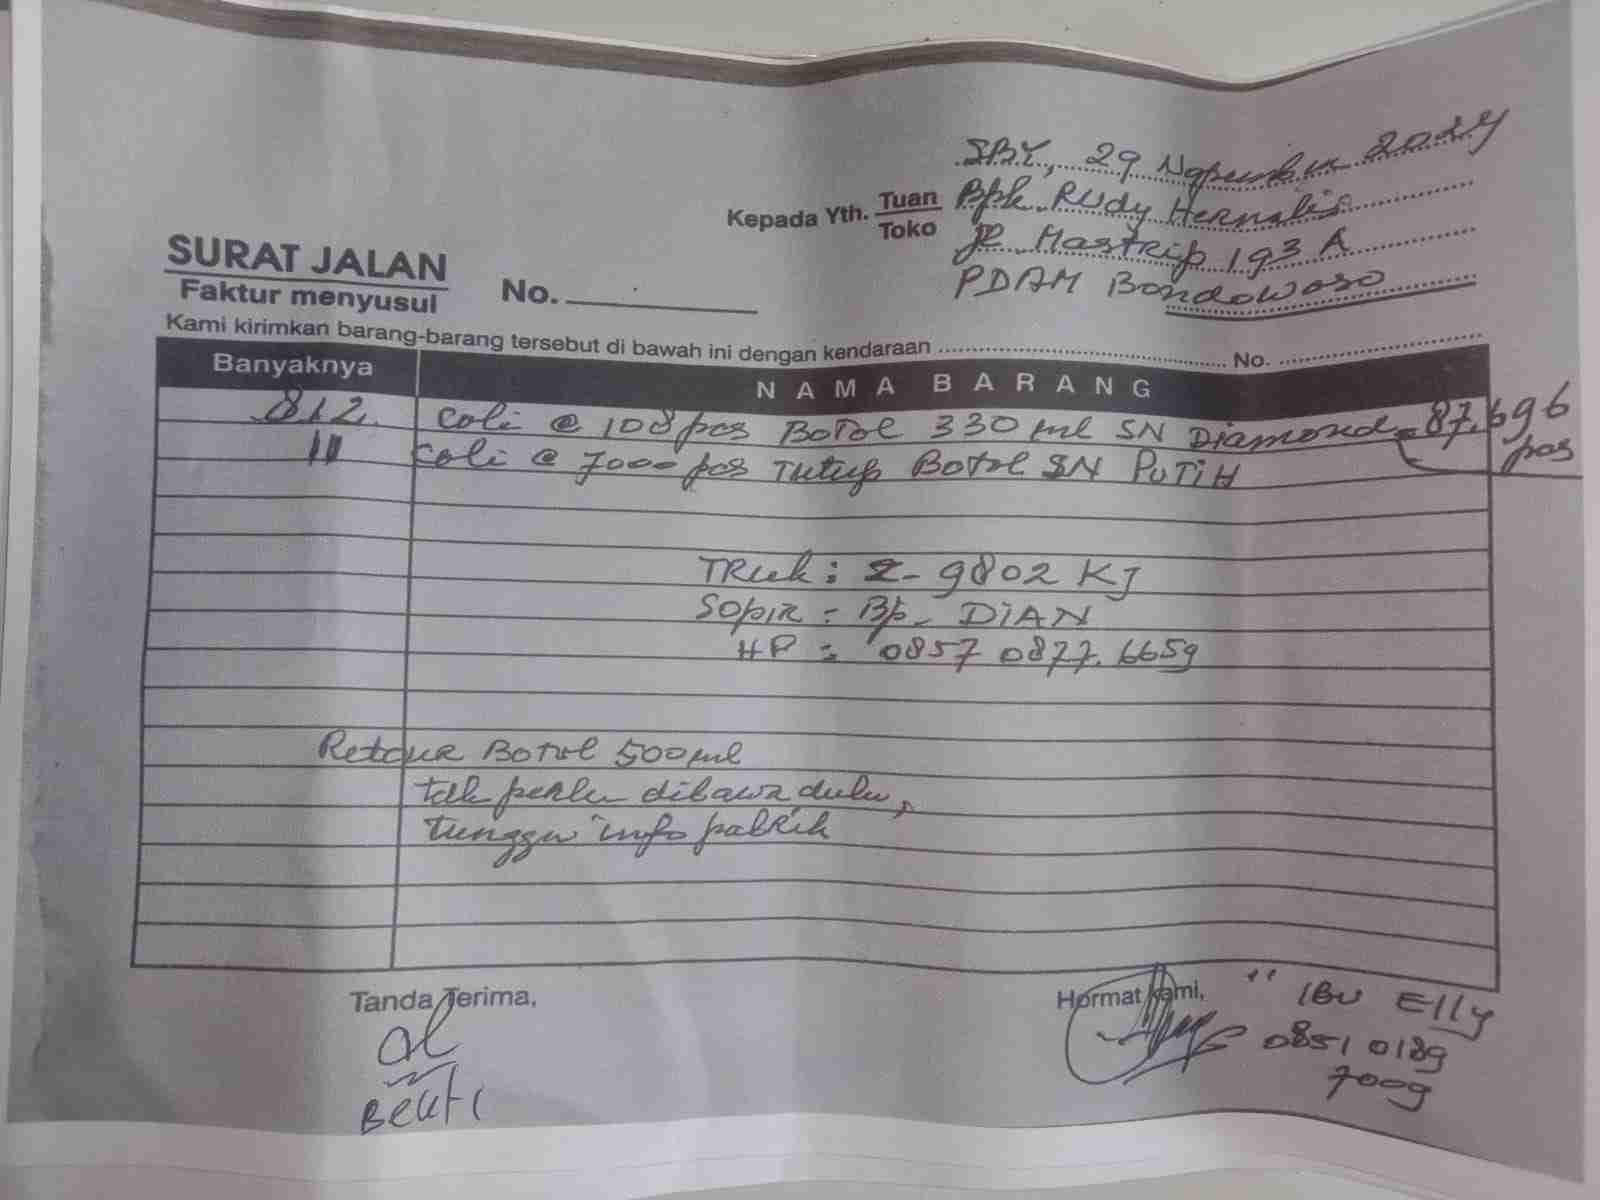 SBY, 29 Nopember 2024
Kepada Yth. Tuan Bpk Rudy Hernalis
Toko Jl. Mastrip 193 A
PDAM Bondowoso
SURAT JALAN
Faktur menyusul
No.
Kami kirimkan barang-barang tersebut di bawah ini dengan kendaraan No.
Banyaknya NAMA BARANG
812 coli @ 108 pcs Botol 330 ml SN Diamond = 87.696 pcs
11 coli @ 7000 pcs Tutup Botol SN PUTIH
TRuk : Z- 9802 KJ
Sopir = Bp. DIAN
HP = 0857 0877.6659
Retour Botol 500 ml
tdk perlu dibawa dulu,
tunggu info pabrik
Tanda Terima,
BEKTI
Hormat kami,
" IBU Elly
0851 0189
7009